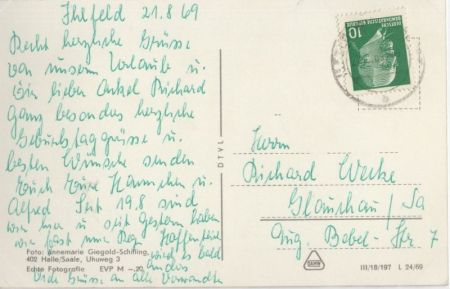 Ihlfeld 21.8.69
Recht herzliche Grüsse
von unserm Urlaube u.
Dir lieber Onkel Richard
ganz besonders herzliche
Geburtstagsgrüsse u.
besten Wünsche senden
Euch Eure Hannchen u.
Alfred Seit 19.8 sind
wir hier u seit Gestern haben
wir fast nur Reg. Hoffentlich
wird es bald
anders
Viele Grüsse an alle Verwandte
Foto: Annemarie Giegold-Schilling,
402 Halle/Saale, Uhuweg 3
Echte Fotografie EVP M -,20
DTVL
DEUTSCHE
DEMOKRATISCHE REPUBLIK
10
Herrn
Richard Werke
Glauchau/Sa
Aug. Bebel-Str. 7
III/18/197 L 24/69